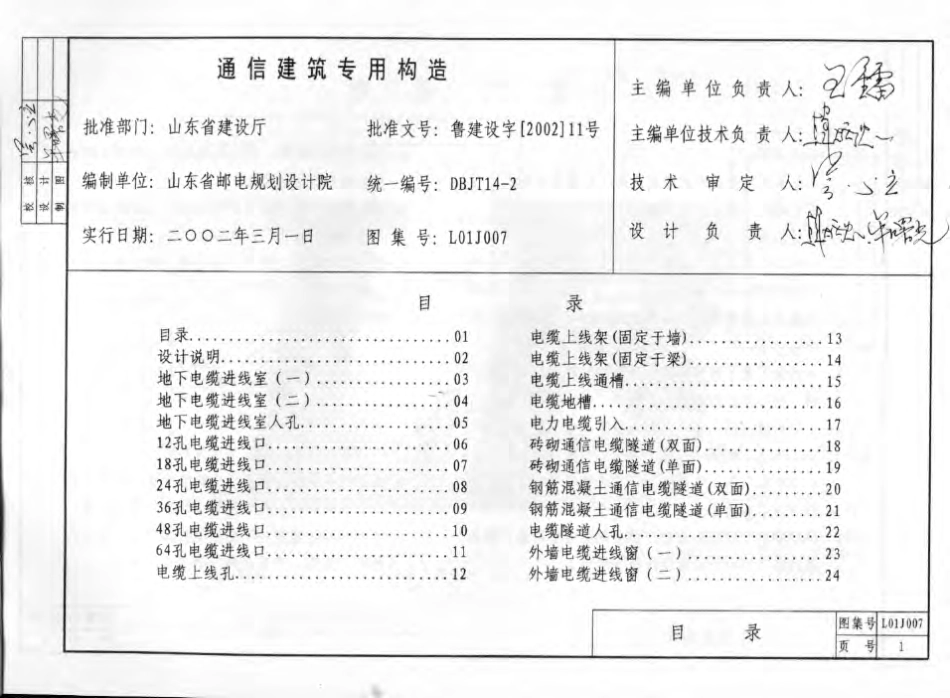 通信建筑专用构造
批准部门：山东省建设厅 批准文号：鲁建设字[2002]11号
编制单位：山东省邮电规划设计院 统一编号：DBJT14-2
实行日期：二〇〇二年三月一日 图集号：L01J007
主编单位负责人：
主编单位技术负责人：
技术审定人：
设计负责人：
校核
设计
制图
目录
目录 01
设计说明 02
地下电缆进线室（一） 03
地下电缆进线室（二） 04
地下电缆进线室人孔 05
12孔电缆进线口 06
18孔电缆进线口 07
24孔电缆进线口 08
36孔电缆进线口 09
48孔电缆进线口 10
64孔电缆进线口 11
电缆上线孔 12
电缆上线架(固定于墙) 13
电缆上线架(固定于梁) 14
电缆上线通槽 15
电缆地槽 16
电力电缆引入 17
砖砌通信电缆隧道(双面) 18
砖砌通信电缆隧道(单面) 19
钢筋混凝土通信电缆隧道(双面) 20
钢筋混凝土通信电缆隧道(单面) 21
电缆隧道人孔 22
外墙电缆进线窗（一） 23
外墙电缆进线窗（二） 24
目录
图集号 L01J007
页号 1